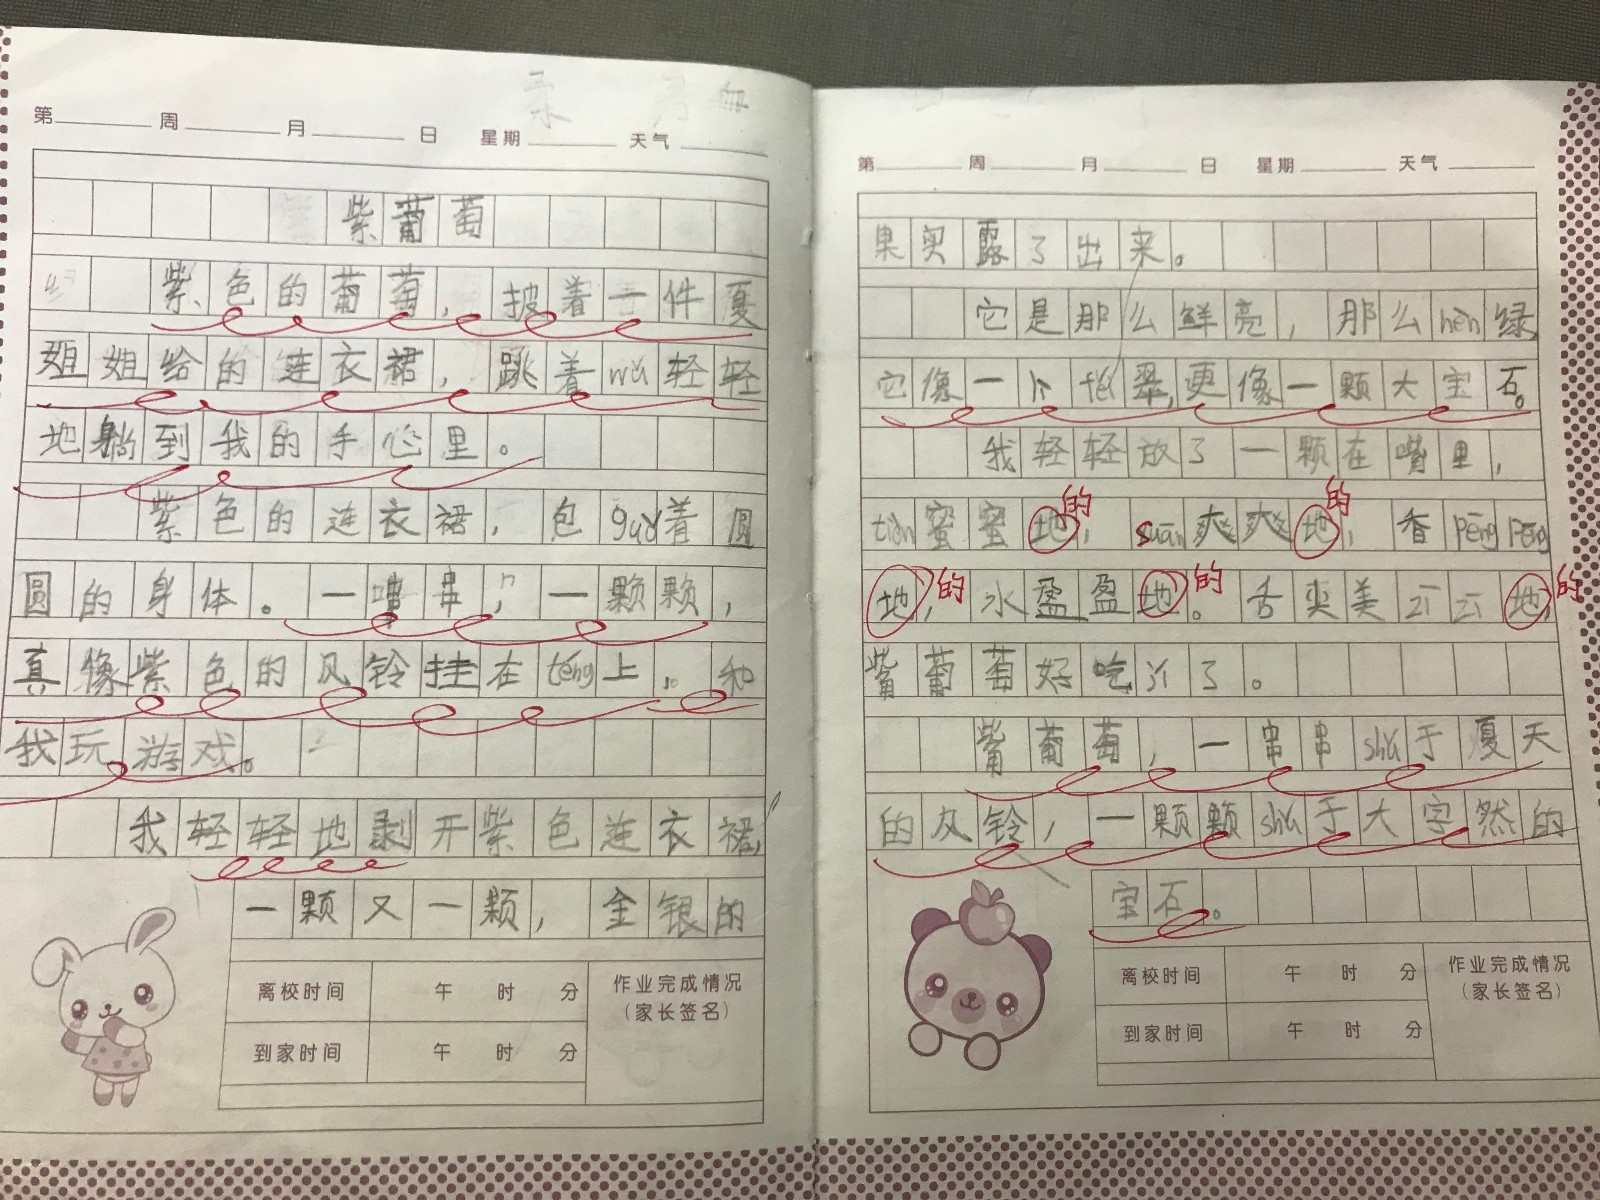 第 周 月 日 星期 天气
紫葡萄
紫色的葡萄，披着一件夏
姐姐给的连衣裙，跳着wǔ轻轻
地躺到我的手心里。
紫色的连衣裙，包guǒ着圆
圆的身体。一串，一颗颗，
真像紫色的风铃挂在téng上。和
我玩游戏。
我轻轻地剥开紫色连衣裙，
一颗又一颗，金银的
离校时间 午 时 分
到家时间 午 时 分
作业完成情况
（家长签名）
第 周 月 日 星期 天气
果实露了出来。
它是那么鲜亮，那么nèn绿，
它像一个fěi翠，更像一颗大宝石。
我轻轻放了一颗在嘴里，
tián蜜蜜地的，suān爽爽地的，香pēng pēng
地的，水盈盈地的。舌英美zī zī地的
紫葡萄好吃了。
紫葡萄，一串串shǔ于夏天
的风铃，一颗颗shǔ于大字然的
宝石。
离校时间 午 时 分
到家时间 午 时 分
作业完成情况
（家长签名）